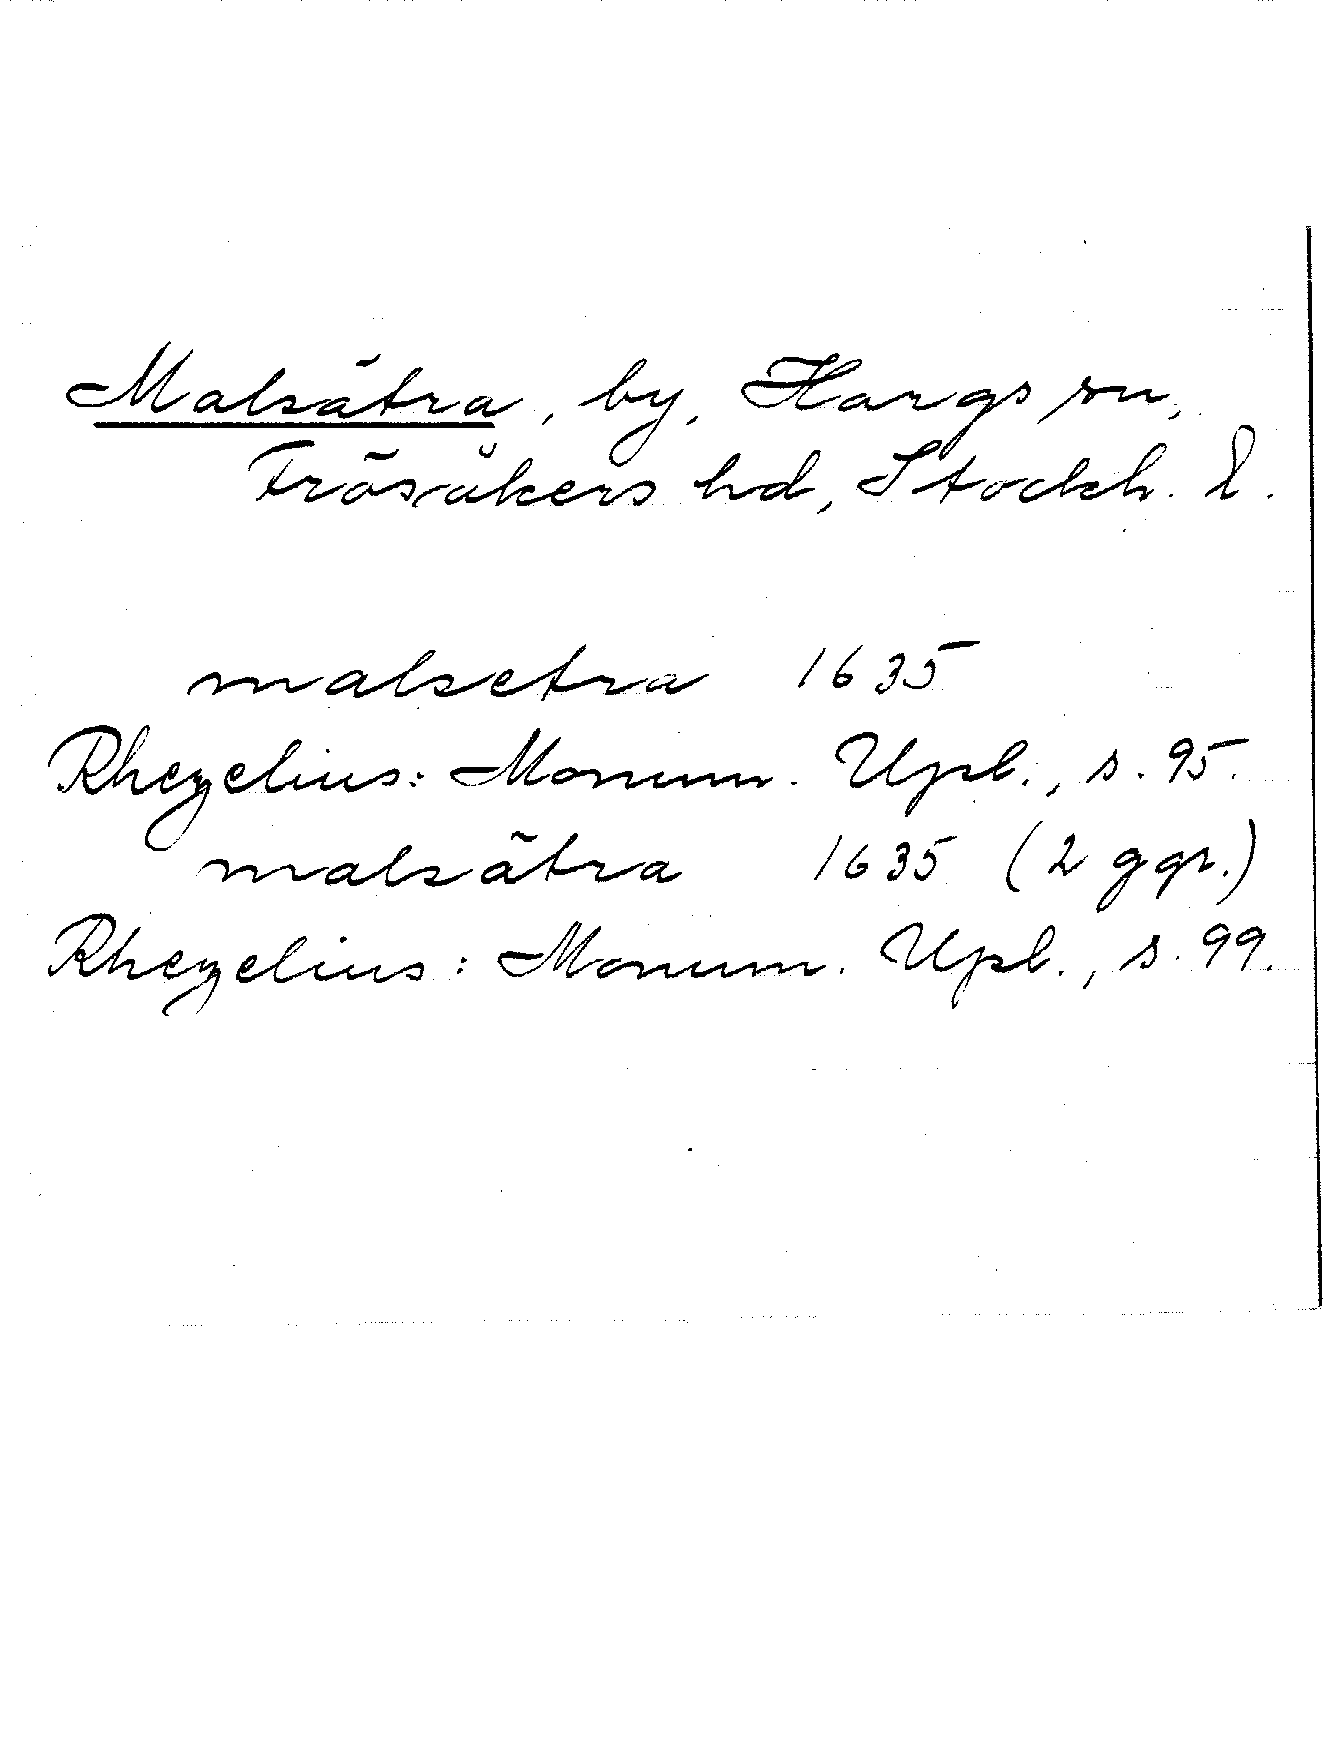 Malsätra, by, Hargs sn,
Frösåkers hd, Stockh. l.
malsetra 1635
Rhezelius: Monum. Upl., s. 95.
malsätra 1635 (2 ggr.)
Rhezelius: Monum. Upl., s. 99.